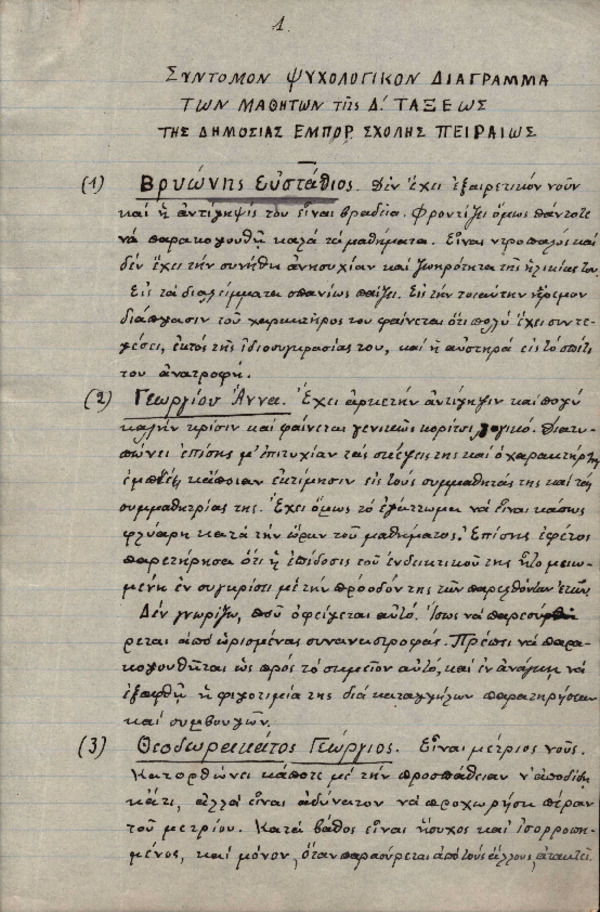 1.
ΣΥΝΤΟΜΟΝ ΨΥΧΟΛΟΓΙΚΟΝ ΔΙΑΓΡΑΜΜΑ
ΤΩΝ ΜΑΘΗΤΩΝ τῆς Δ΄ ΤΑΞΕΩΣ
ΤΗΣ ΔΗΜΟΣΙΑΣ ΕΜΠΟΡ. ΣΧΟΛΗΣ ΠΕΙΡΑΙΩΣ
(1) Βρυώνης Εὐστάθιος. Δὲν ἔχει ἐξαιρετικὸν νοῦν
καὶ ἡ ἀντίληψίς του εἶναι βραδεῖα. Φροντίζει ὅμως πάντοτε
νὰ παρακολουθῇ καλὰ τὰ μαθήματα. Εἶναι ντροπαλὸς καὶ
δὲν ἔχει τὴν συνήθη ἀνησυχίαν καὶ ζωηρότητα τῆς ἡλικίας του.
Εἰς τὰ διαλείμματα σπανίως παίζει. Εἰς τὴν τοιαύτην ἤρεμον
διάπλασιν τοῦ χαρακτῆρος του φαίνεται ὅτι πολὺ ἔχει συντε-
λέσει, ἐκτὸς τῆς ἰδιοσυγκρασίας του, καὶ ἡ αὐστηρὰ εἰς τὸ σπίτι
του ἀνατροφή.
(2) Γεωργίου Ἄννα. Ἔχει ἀρκετὴν ἀντίληψιν καὶ πολὺ
καλὴν κρίσιν καὶ φαίνεται γενικῶς κορίτσι λογικό. Διατυ-
πώνει ἐπίσης μ' ἐπιτυχίαν τὰς σκέψεις της καὶ ὁ χαρακτήρ της
ἐμπνέει κάποιαν ἐκτίμησιν εἰς τοὺς συμμαθητάς της καὶ τὰς
συμμαθητρίας της. Ἔχει ὅμως τὸ ἐλάττωμα νὰ εἶναι κάπως
φλύαρη κατὰ τὴν ὥραν τοῦ μαθήματος. Ἐπίσης ἐφέτος
παρετήρησα ὅτι ἡ ἐπίδοσις τοῦ ἐνδεικτικοῦ της ἦτο μειω-
μένη ἐν συγκρίσει μὲ τὴν πρόοδόν της τῶν παρελθόντων ἐτῶν.
Δὲν γνωρίζω, ποῦ ὀφείλεται αὐτό. Ἴσως νὰ παρεσύ
ρεται ἀπὸ ὡρισμένας συναναστροφάς. Πρέπει νὰ παρα-
κολουθῆται ὡς πρὸς τὸ σημεῖον αὐτό, καὶ ἐν ἀνάγκῃ νὰ
ἐξαφθῇ ἡ φιλοτιμία της διὰ καταλλήλων παρατηρήσεων
καὶ συμβουλῶν.
(3) Θεοδωρακάτος Γεώργιος. Εἶναι μέτριος νοῦς.
Κατορθώνει κάποτε μὲ τὴν προσπάθειαν ν' ἀποδίδῃ
κάτι, ἀλλὰ εἶναι ἀδύνατον νὰ προχωρήσῃ πέραν
τοῦ μετρίου. Κατὰ βάθος εἶναι ἥσυχος καὶ ἰσορροπη-
μένος, καὶ μόνον, ὅταν παρασύρεται ἀπὸ τοὺς ἄλλους, ἀτακτεῖ.